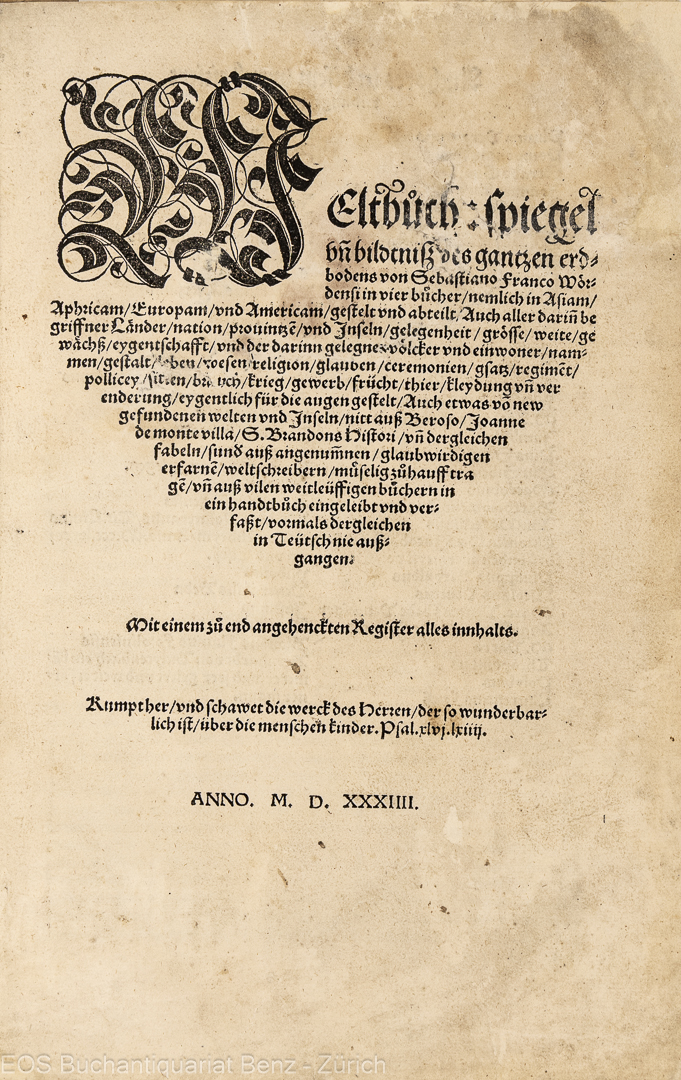 WEltbůch: spiegel
vñ bildtnisz des gantzen erd⸗
bodens von Sebastiano Franco Wör⸗
densi in vier bůcher/nemlich in Asiam/
Aphricam/Europam/vnd Americam/gestelt vnd abteilt/Auch aller darin̄ be
griffner Länder/nation/prouintzẽ/vnd Inseln/gelegenheit/grösse/weite/ge
wächß/eygentschafft/vnd der darinn gelegner völcker vnd einwoner/nam⸗
men/gestalt/leben/wesen/religion/glauben/ceremonien/gsatz/regimẽt/
pollicey/sitten/brauch/krieg/gewerb/frücht/thier/kleydung vñ ver
enderung/eygentlich für die augen gestelt/Auch etwas võ new
gefundenen welten vnd Inseln/nitt auß Beroso/Joanne
de monte villa/S. Brandons Histori/vñ dergleichen
fabeln/sund̓ auß angenum̄nen/glaubwirdigen
erfarnẽ/weltschreibern/můselig zů hauff tra
gẽ/vñ auß vilen weitleüffigen bůchern in
ein handtbůch eingeleibt vnd ver⸗
faßt/vormals dergleichen
in Teütsch nie auß⸗
gangen.
Mit einem zů end angehenckten Register alles innhalts.
Kumpt her/vnd schawet die werck des Herren/der so wunderbar⸗
lich ist/über die menschen kinder. Psal. xlvj. lxiiij.
ANNO. M. D. XXXIIII.
EOS Buchantiquariat Benz - Zürich